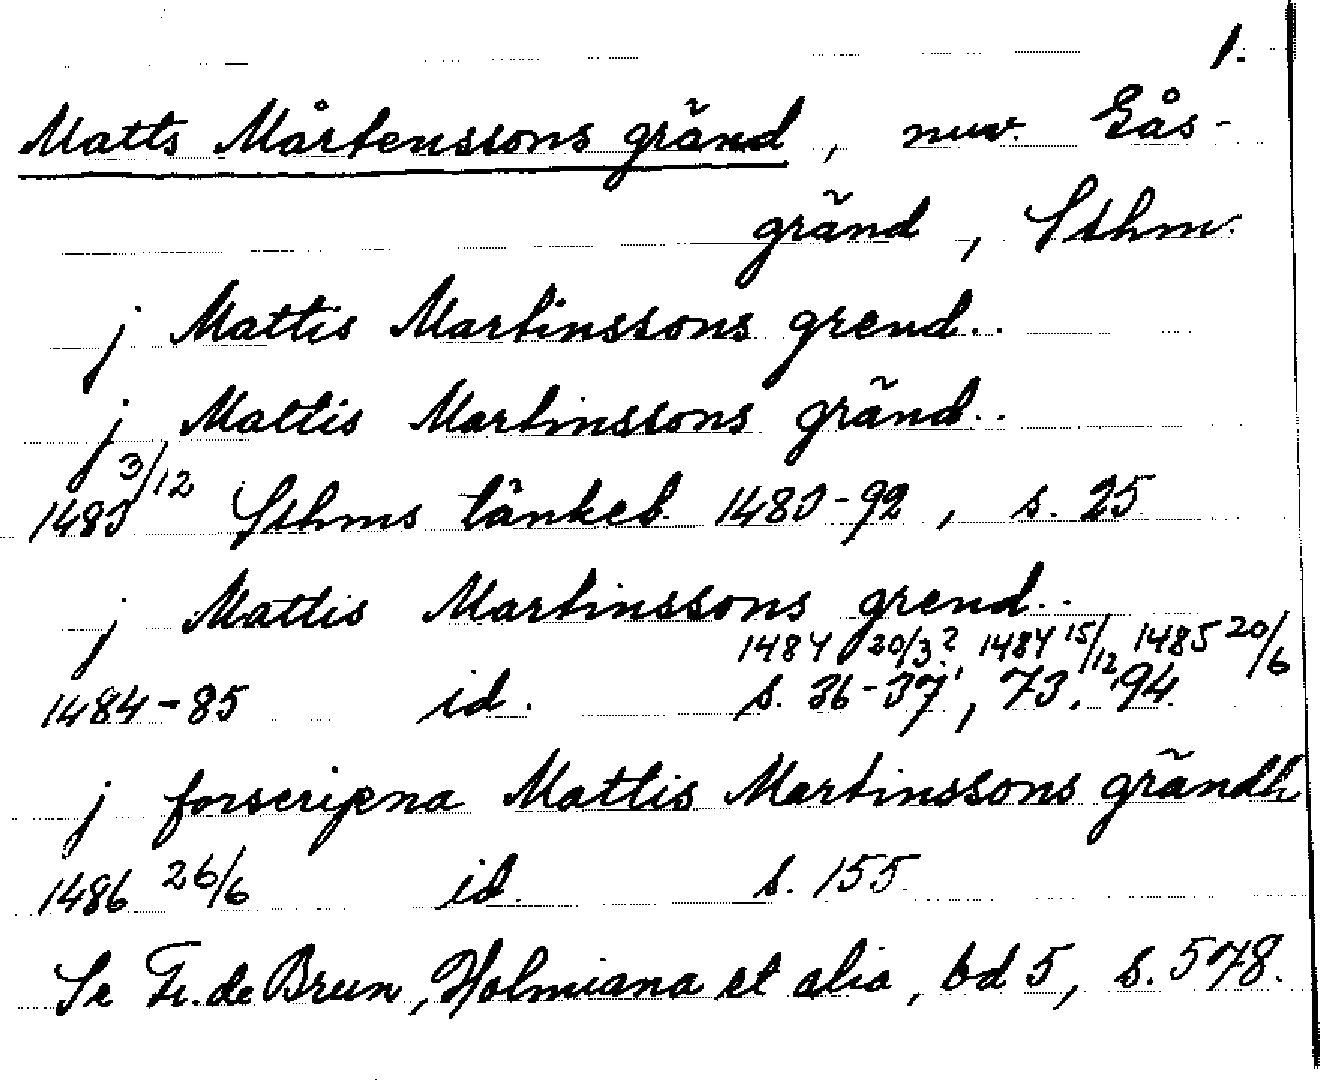 1.
Matts Mårtenssons gränd, nuv. Gås-
gränd, Sthm.
j Mattis Martinssons grend..
j Mattis Martinssons gränd..
1483 3/12 Sthms tänkeb. 1483-92, s. 25
j Mattis Martinssons grend..
1484 20/3?, 1484 15/12, 1485 20/6
1484-85 id. s. 36-37, 73, 94
j forscripna Mattis Martinssons grändh
1486 26/6 id. s. 155
Se Fr. de Brun, Holmiana et alia, bd 5, s. 578.